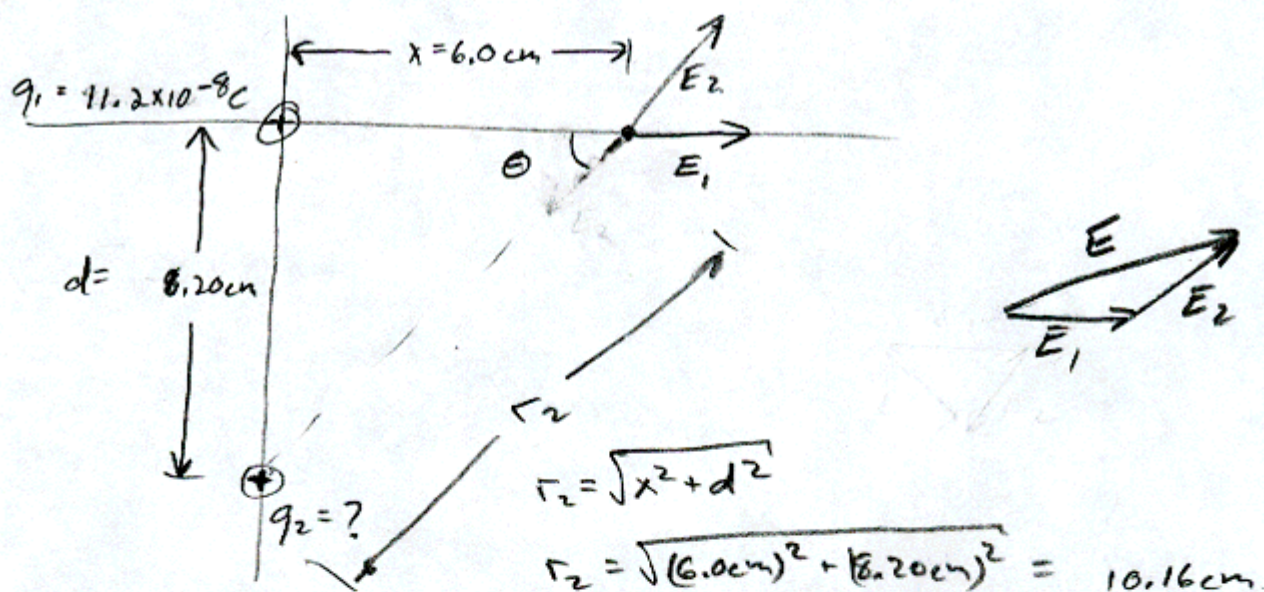 x = 6.0 cm
E₂
q₁ = 11.2x10⁻⁸C
θ
E₁
d = 8.20cm
E
E₁
E₂
r₂
q₂ = ?
r₂ = √x² + d²
r₂ = √(6.0cm)² + (8.20cm)² = 10.16cm